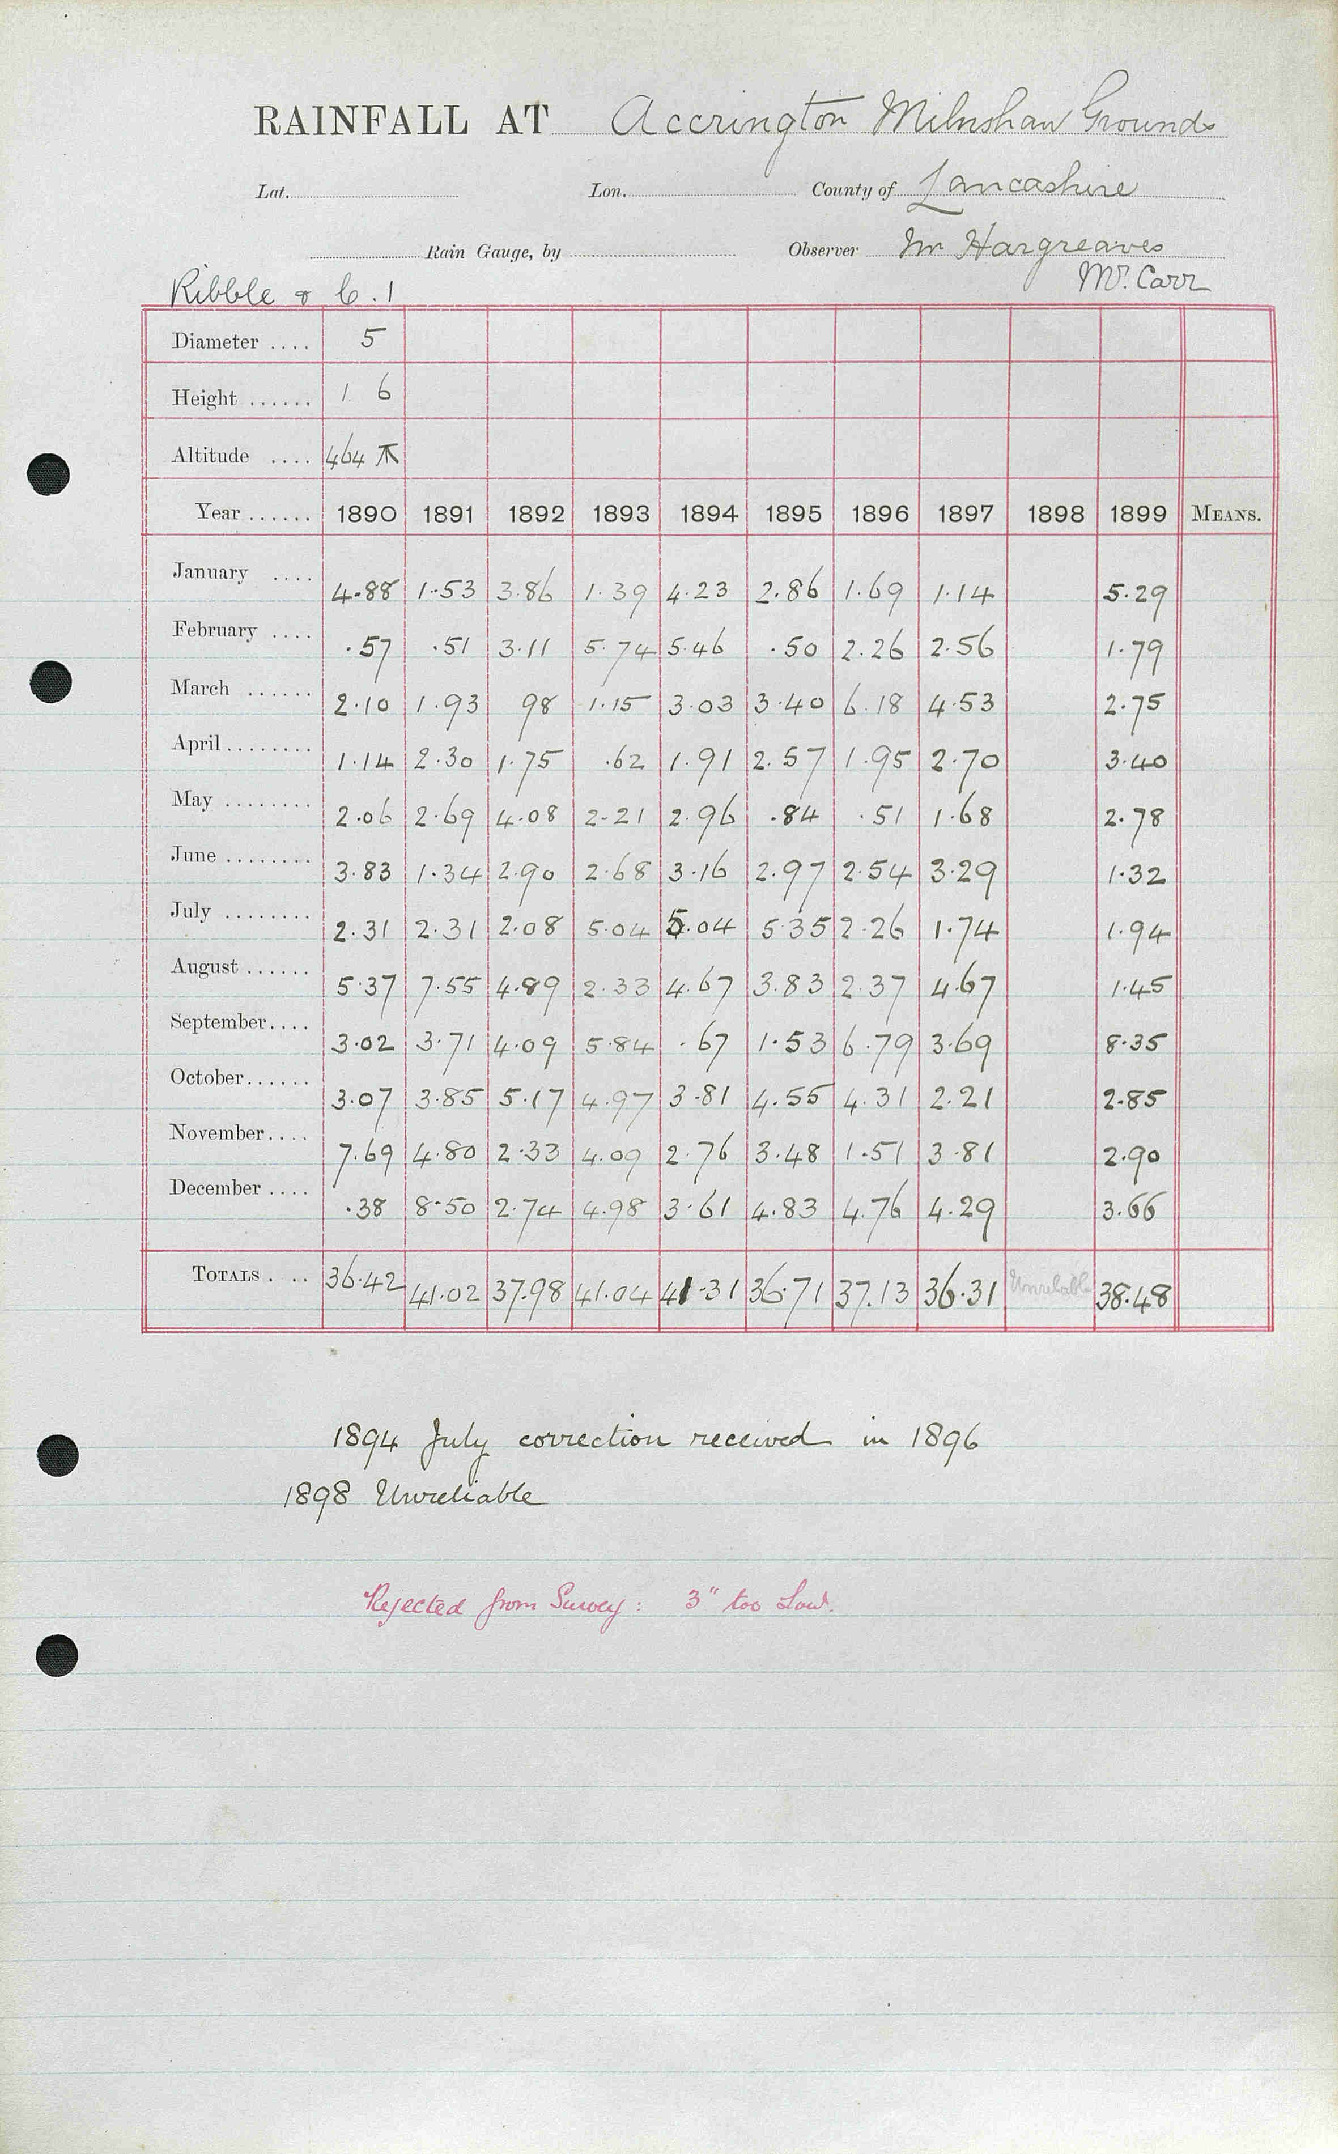 RAINFALL AT Accrington Milnshaw Grounds
Lat. Lon. County of Lancashire
Rain Gauge, by Observer Mr Hargreaves
Mr. Carr
Ribble & C. 1
Diameter .... 5
Height ...... 1 6
Altitude .... 464
Year ...... 1890 1891 1892 1893 1894 1895 1896 1897 1898 1899 MEANS.
January .... 4.88 1.53 3.86 1.39 4.23 2.86 1.69 1.14 5.29
February .... .57 .51 3.11 5.74 5.46 .50 2.26 2.56 1.79
March ...... 2.10 1.93 98 1.15 3.03 3.40 6.18 4.53 2.75
April ........ 1.14 2.30 1.75 .62 1.91 2.57 1.95 2.70 3.40
May ........ 2.06 2.69 4.08 2.21 2.96 .84 .51 1.68 2.78
June ........ 3.83 1.34 2.90 2.68 3.16 2.97 2.54 3.29 1.32
July ........ 2.31 2.31 2.08 5.04 5.04 5.35 2.26 1.74 1.94
August ...... 5.37 7.55 4.89 2.33 4.67 3.83 2.37 4.67 1.45
September.... 3.02 3.71 4.09 5.84 .67 1.53 6.79 3.69 8.35
October...... 3.07 3.85 5.17 4.97 3.81 4.55 4.31 2.21 2.85
November.... 7.69 4.80 2.33 4.09 2.76 3.48 1.51 3.81 2.90
December .... .38 8.50 2.74 4.98 3.61 4.83 4.76 4.29 3.66
TOTALS . .. 36.42 41.02 37.98 41.04 41.31 36.71 37.13 36.31 Unreliable 38.48
1894 July correction received in 1896
1898 Unreliable
Rejected from Survey: 3" too Low.